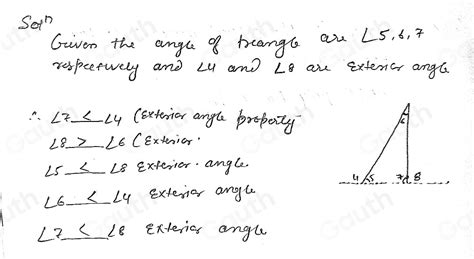 Solⁿ
Given the angle of triangle are ∠5, 6, 7
respectively and ∠4 and ∠8 are Exterior angle
∴ ∠7 < ∠4 (Exterior angle property
∠8 > ∠6 (Exterior.
∠5 < ∠8 Exterior. angle.
∠6 < ∠4 Exterior angle
∠7 < ∠8 Exterior angle
6
4 5 7 8
Gauth
Gauth
Gauth
Gauth